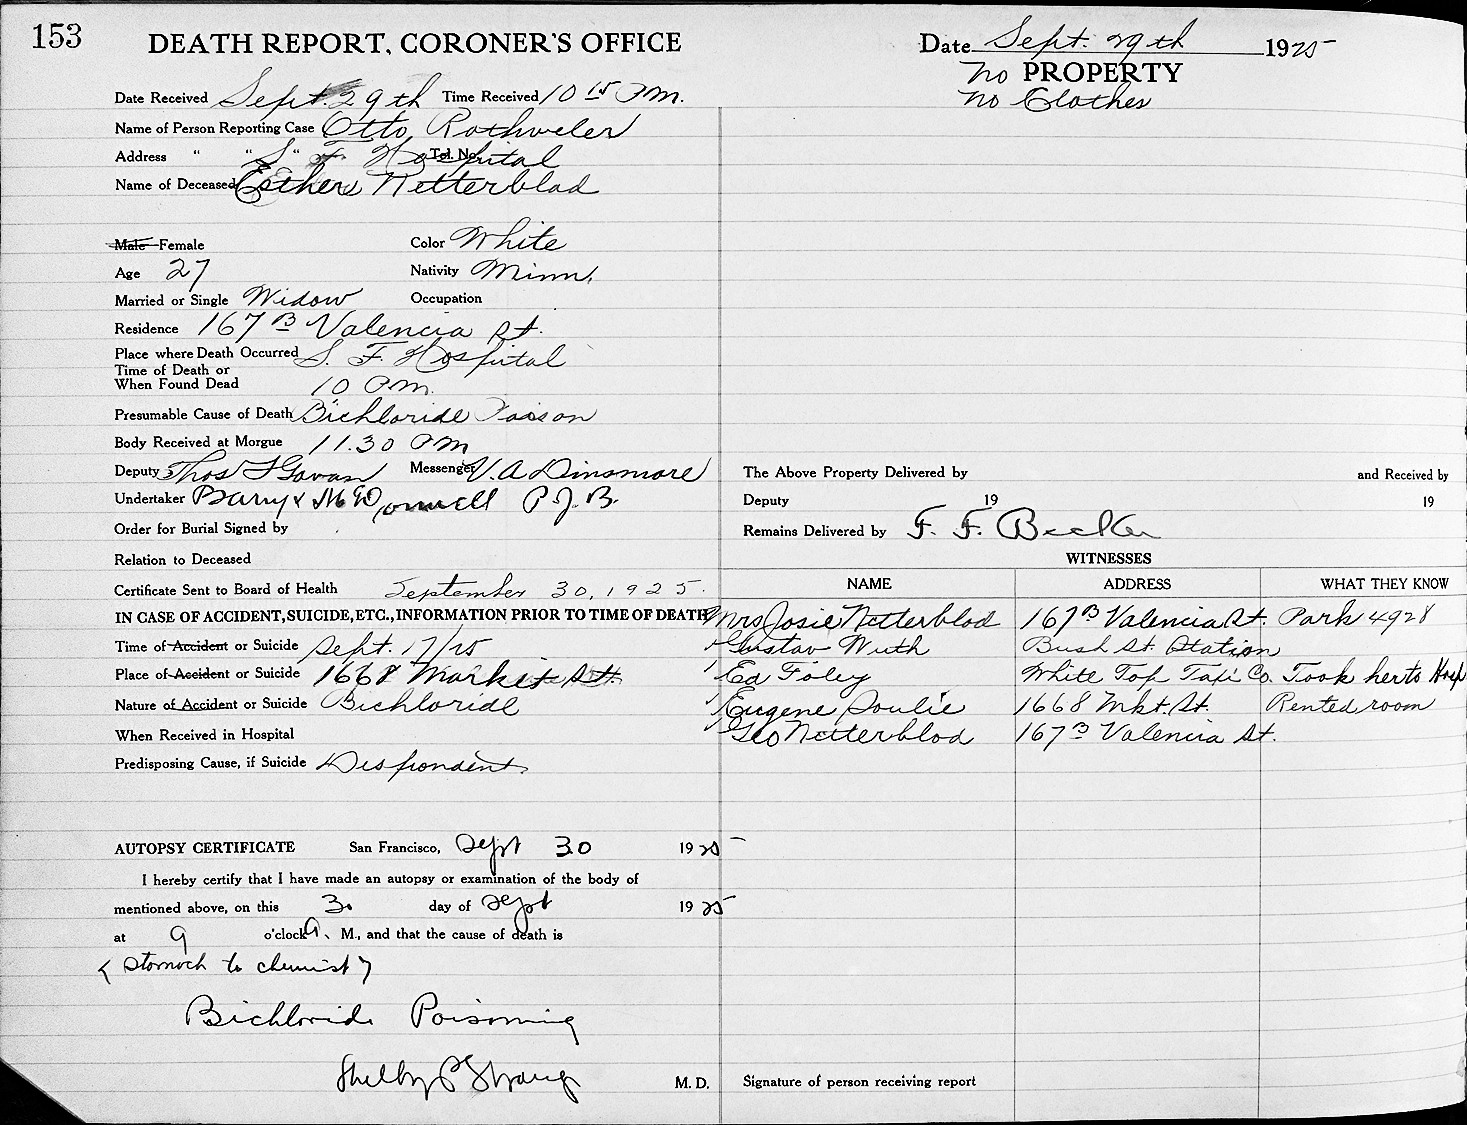 153
DEATH REPORT, CORONER'S OFFICE
Date Sept. 29th 1925
No PROPERTY
No Clothes
Date Received Sept. 29th Time Received 10 15 P.M.
Name of Person Reporting Case Otto Rothweler
Address " " " S. F. Hospital Tel. No.
Name of Deceased Esther Netterblad
Male Female Color White
Age 27 Nativity Minn.
Married or Single Widow Occupation
Residence 167 B Valencia St.
Place where Death Occurred S. F. Hospital
Time of Death or
When Found Dead 10 P.M.
Presumable Cause of Death Bichloride Poison
Body Received at Morgue 11.30 P.M.
Deputy Thos F Gavan Messenger V. A Dinsmore
Undertaker Barry & McDonnell P. J. B.
Order for Burial Signed by
Relation to Deceased
Certificate Sent to Board of Health September 30, 1925.
IN CASE OF ACCIDENT, SUICIDE, ETC., INFORMATION PRIOR TO TIME OF DEATH
Time of Accident or Suicide Sept. 17/25
Place of Accident or Suicide 1668 Market St.
Nature of Accident or Suicide Bichloride
When Received in Hospital
Predisposing Cause, if Suicide Despondent
AUTOPSY CERTIFICATE San Francisco, Sept 30 1925
I hereby certify that I have made an autopsy or examination of the body of
mentioned above, on this 30 day of Sept 1925
at 9 o'clock A. M., and that the cause of death is
(Stomach to chemist)
Bichloride Poisoning
Shelby P Strange M. D.
The Above Property Delivered by and Received by
Deputy 19 19
Remains Delivered by F. F. Becker
WITNESSES
NAME ADDRESS WHAT THEY KNOW
Mrs Josie Netterblad 167 B Valencia St. Park 4928
Gustav Wuth Bush St. Station
Ed Foley White Top Taxi Co. Took her to Hosp
Eugene Soulie 1668 Mkt. St. Rented room
Geo Netterblad 167 B Valencia St.
Signature of person receiving report